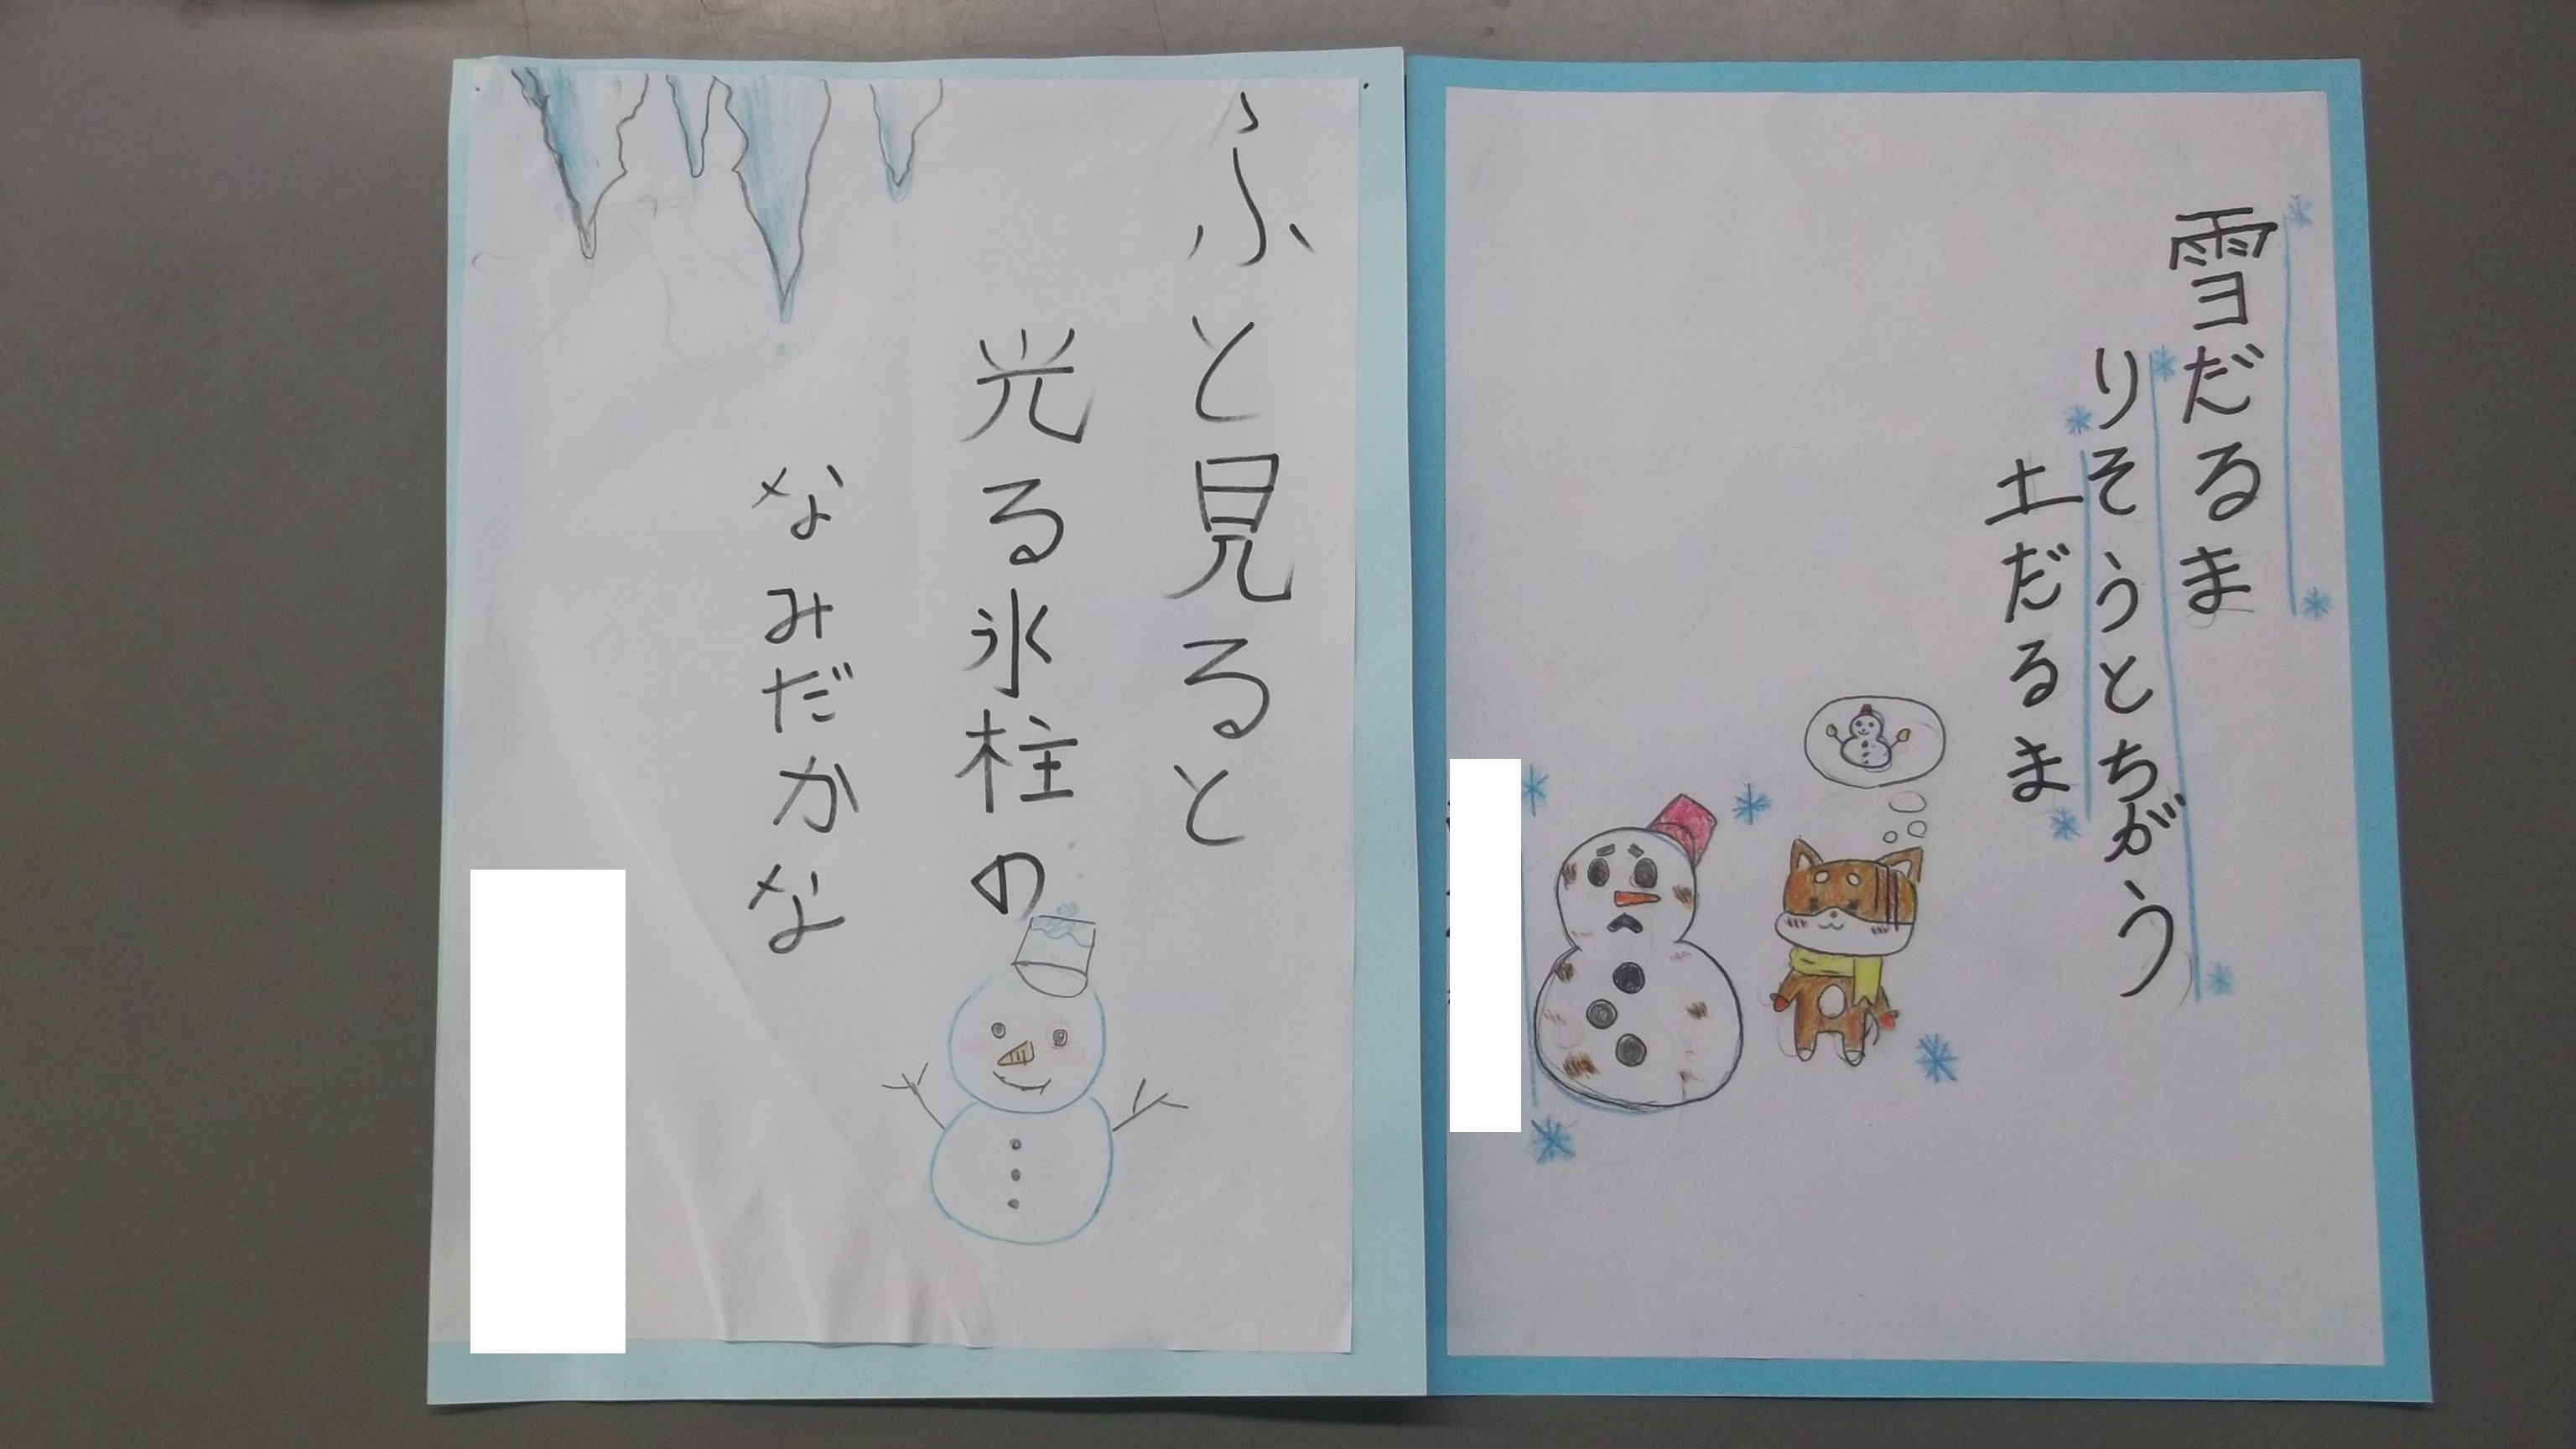 雪だるま
りそうとちがう
土だるま
ふと見ると
光る氷柱の
なみだかな